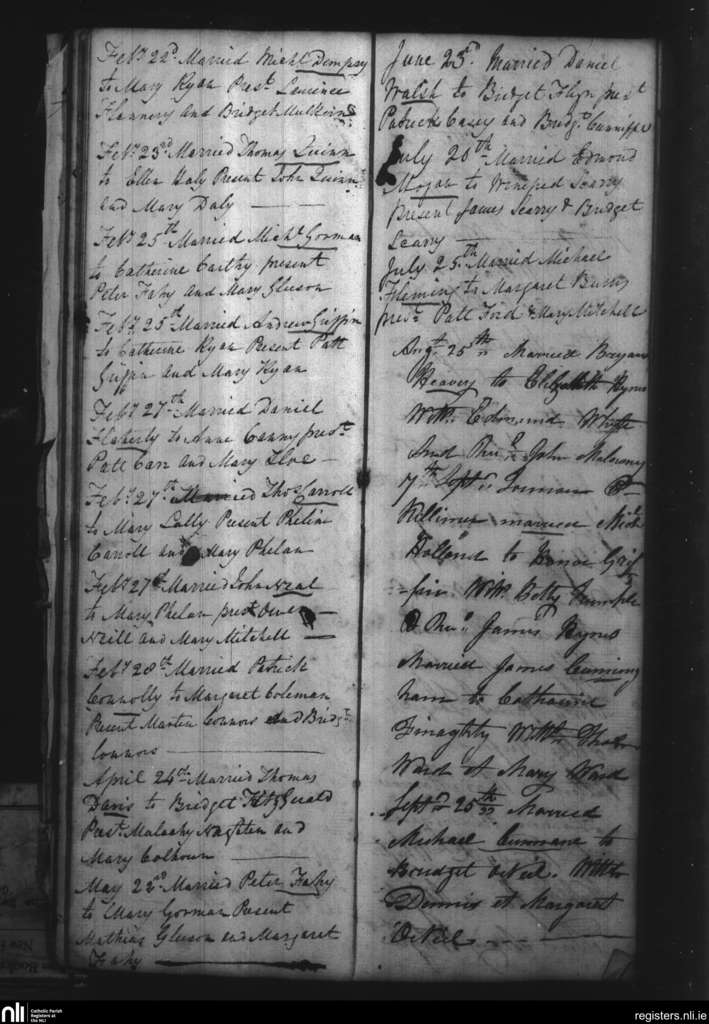 Feby 22d Married Michl Dempsy
to Mary Ryan Prest Laurence
Flannery and Bridget
Feby 23d Married Thomas Quinn
to Ellen Haly Present John Quinn
and Mary Daly
Feby 25th Married Michl Gorman
to Catherine Carthy present
Peter Fahy and Mary Gleeson
Feby 25th Married Andrew Griffin
to Catherine Ryan Present Patt
Griffin and Mary Ryan
Feby 27th Married Daniel
Flaherty to Anne Canny prest
Patt Carr and Mary
Feby 27th Married Thos Carroll
to Mary Lally Present Phelim
Carroll and Mary Phelan
Feby 27th Married John Neal
to Mary Phelan prest Owen
Neill and Mary Mitchell
Feby 28th Married Patrick
Connolly to Margaret Coleman
Present Martin Connors and Bridgt
Connors
April 24th Married Thomas
Davis to Bridget FitzGerald
Prest Malachy Naghten and
Mary Colhoun
May 22d Married Peter Fahy
to Mary Gorman Present
Mathias Gleeson and Margaret
Fahy
June 23d Married Daniel
Walsh to Bridget Flyn prest
Patrick Casey and Bridgt
July 20th Married Edmond
Hogan to Winifred Scarry
Present James Scarry & Bridget
Scarry
July 25th Married Michael
Fleming to Margaret Burns
prest Patt Ford & Mary Mitchell
Augt 25th Married Bryan
Heavey to Elizabeth Hynes
Witts Edmund Whyte
And John Malowny
7th Septr
Killimer married Mich
Holland to Honor Grif
-fin Witts Betty
James Hynes
Married James Cunning
ham to Catharine
Finaghty Witts Thos
Ward et Mary Ward
Septr 25th Married
Michael to
Bridget ONeil. Witts
Dennis et Margaret
ONeil
nli
Catholic Parish
Registers at
the NLI
registers.nli.ie